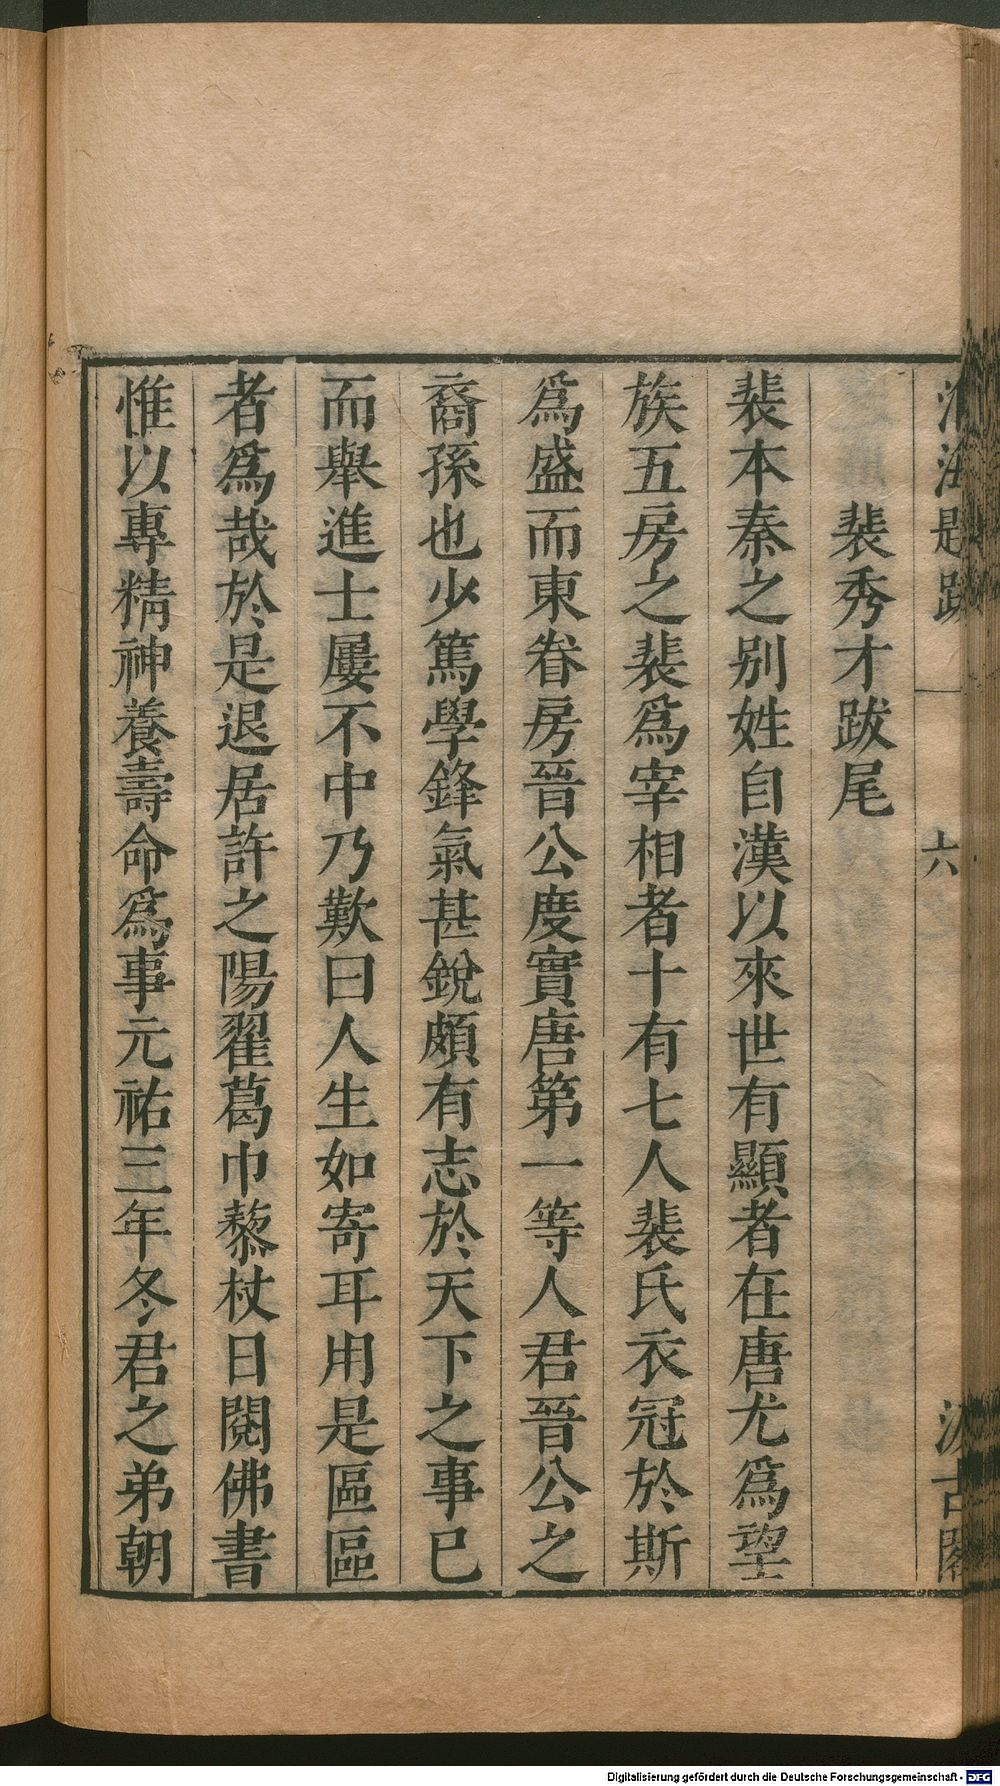 淮海題跋 六 汲古閣
裴秀才跋尾
裴本秦之別姓自漢以來世有顯者在唐尤爲望
族五房之裴爲宰相者十有七人裴氏衣冠於斯
爲盛而東眷房晉公度實唐第一等人君晉公之
裔孫也少篤學鋒氣甚銳頗有志於天下之事已
而舉進士屢不中乃歎曰人生如寄耳用是區區
者爲哉於是退居許之陽翟葛巾藜杖日閱佛書
惟以專精神養壽命爲事元祐三年冬君之弟朝
Digitalisierung gefördert durch die Deutsche Forschungsgemeinschaft - DFG